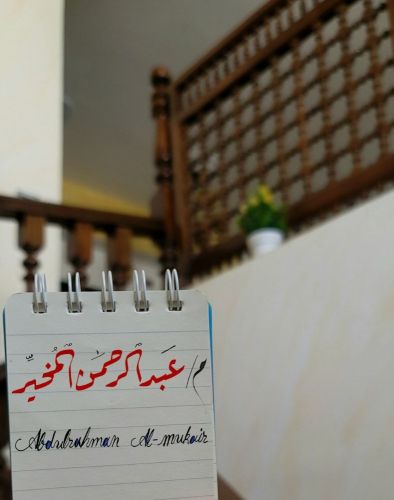 م/ عبدالرحمن المخيّر
Abdulrahman Al-mukair